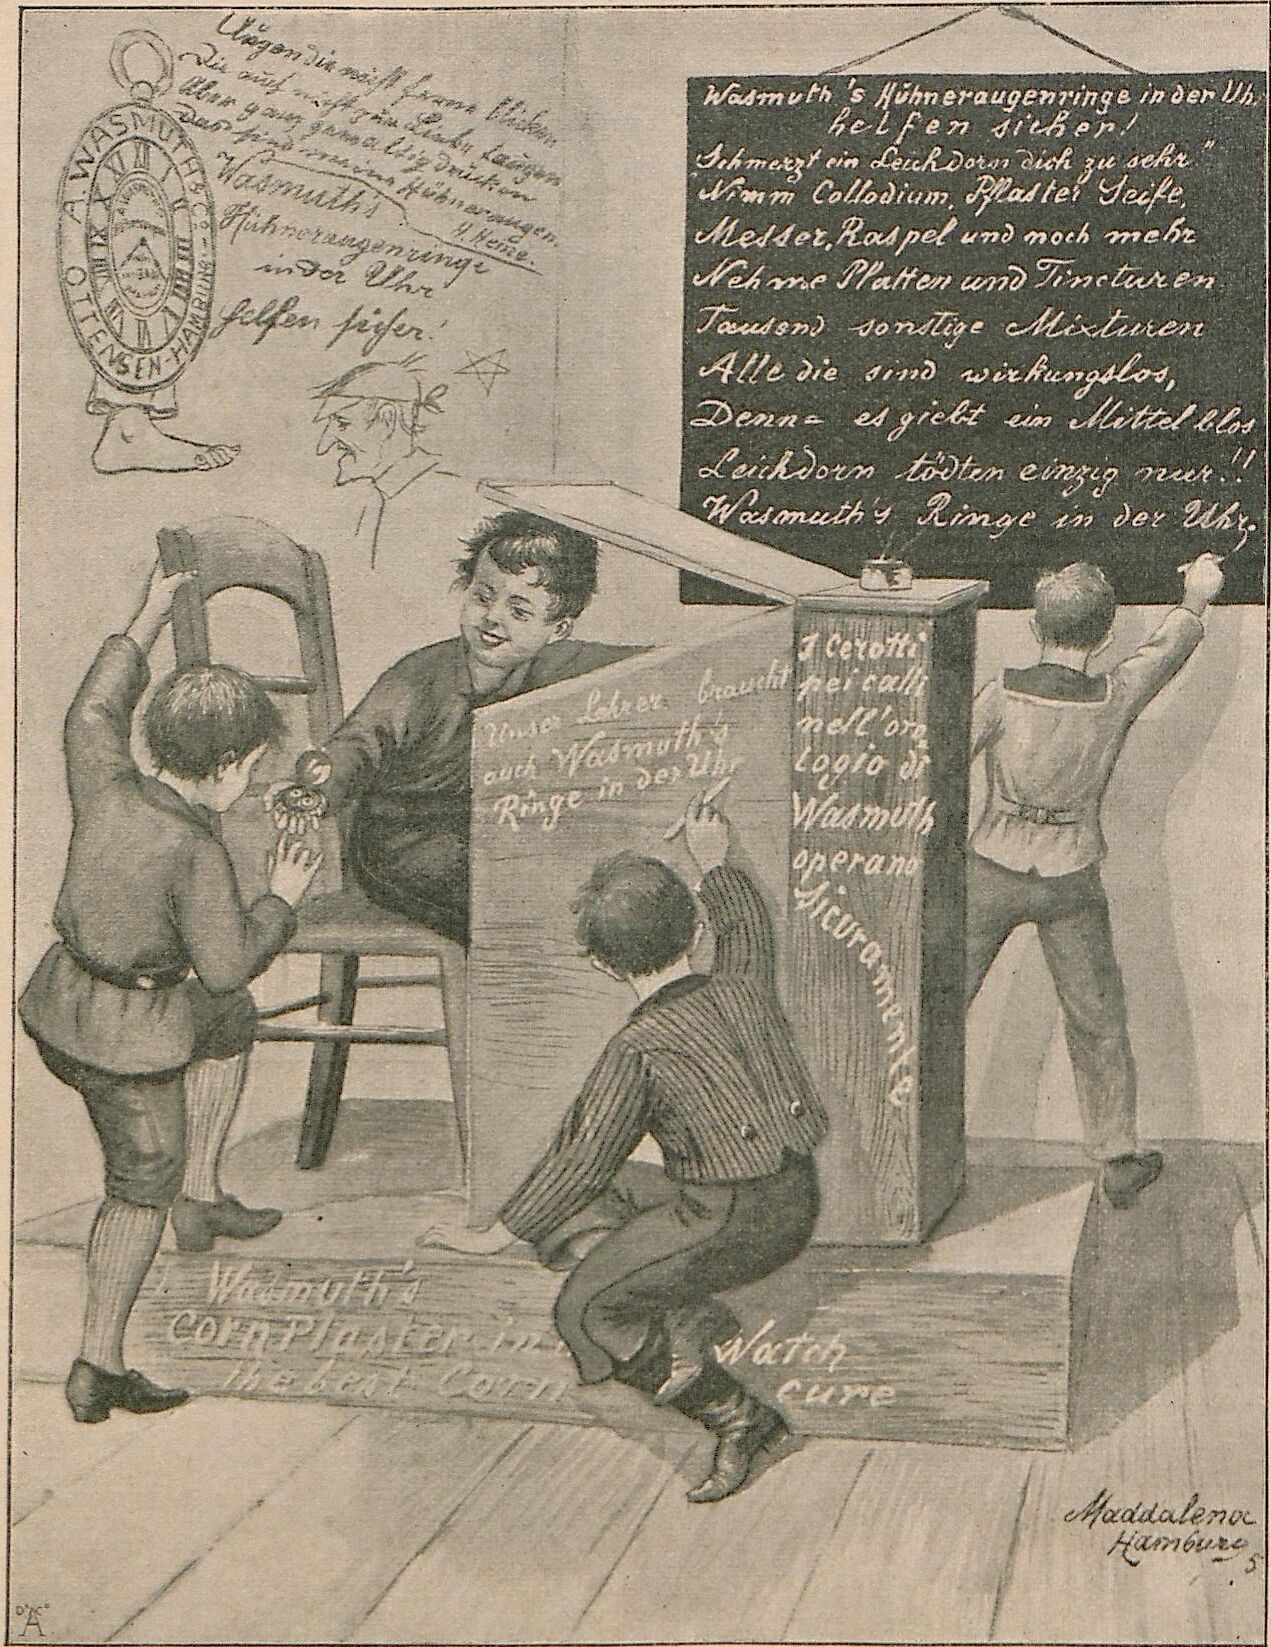 Augen die nicht ferne blicken
Die auch nicht zur Liebe taugen
Aber ganz gewaltig drücken
Das sind meine Hühneraugen.
H. Heine.
Wasmuth's
Hühneraugenringe
in der Uhr
helfen sicher!
A. WASMUTH & Co-
OTTENSEN-HAMBURG-
XII I II III IIII V VI VII VIII IX X XI
Wasmuth's Hühneraugenringe in der Uh.
helfen sicher!
Schmerzt ein Leichdorn dich zu sehr"
Nimm Collodium, Pflaster Seife,
Messer, Raspel und noch mehr
Nehme Platten und Tincturen
Tausend sonstige Mixturen
Alle die sind wirkungslos,
Denn= es giebt ein Mittel blos
Leichdorn tödten einzig nur!!
Wasmuth's Ringe in der Uhr.
Unser Lehrer braucht
auch Wasmuth's
Ringe in der Uhr
I Cerotti
pei calli
nell'oro
logio di
Wasmuth
operano
Sicuramente
Wasmuth's
Corn Plaster in Watch
the best Corn cure
Maddalena
Hamburg
5